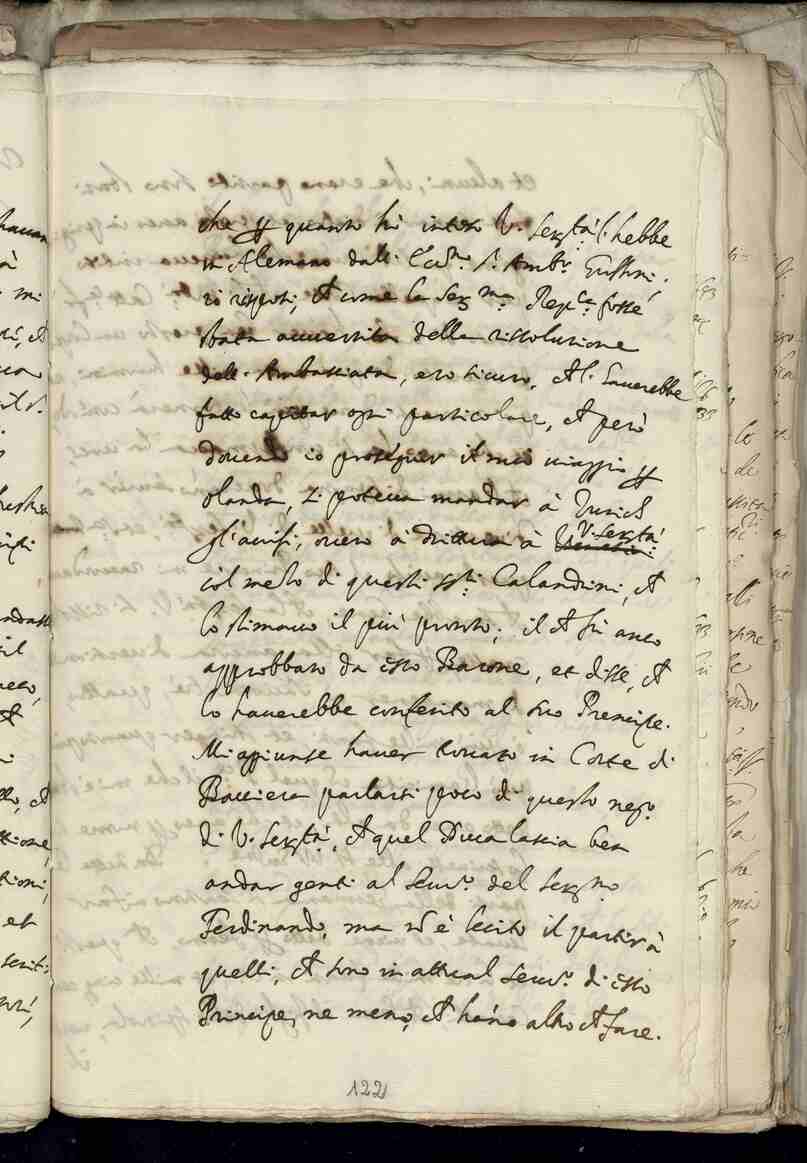 che per quanto hà inteso V. Ser.tà l'hebbe
in Alemano dall' Ecc.mo S.r Amb.r Gussoni,
io risposi, ch come la Ser.ma Rep.ca fosse
stata avvertita della rissolutione
dell' Ambasciata, ero sicuro, ch l' haverebbe
fatto capitar ogni particolare, ch però
dovendo io proseguir il mio viaggio per
olanda, si poteva mandar à Zurich
gl'avisi, overo à drittura à V. Ser.tà
col mezo di questi ss.ri Calandrini, ch
lo stimavo il più pronto; il ch fù anco
approbbato da esso Barone, et disse, ch
lo haverebbe conferito al suo Prencipe.
Mi aggiunse haver trovato in Corte di
Baviera parlarsi poco di questo neg.o
di V. Ser.tà, ch quel Duca lascia ben
andar genti al serv.o del Ser.mo
Ferdinando, ma nō è lecito il partir à
quelli, ch sono in attual serv.o di esso
Principe, ne meno, ch hano altro ch fare.
122